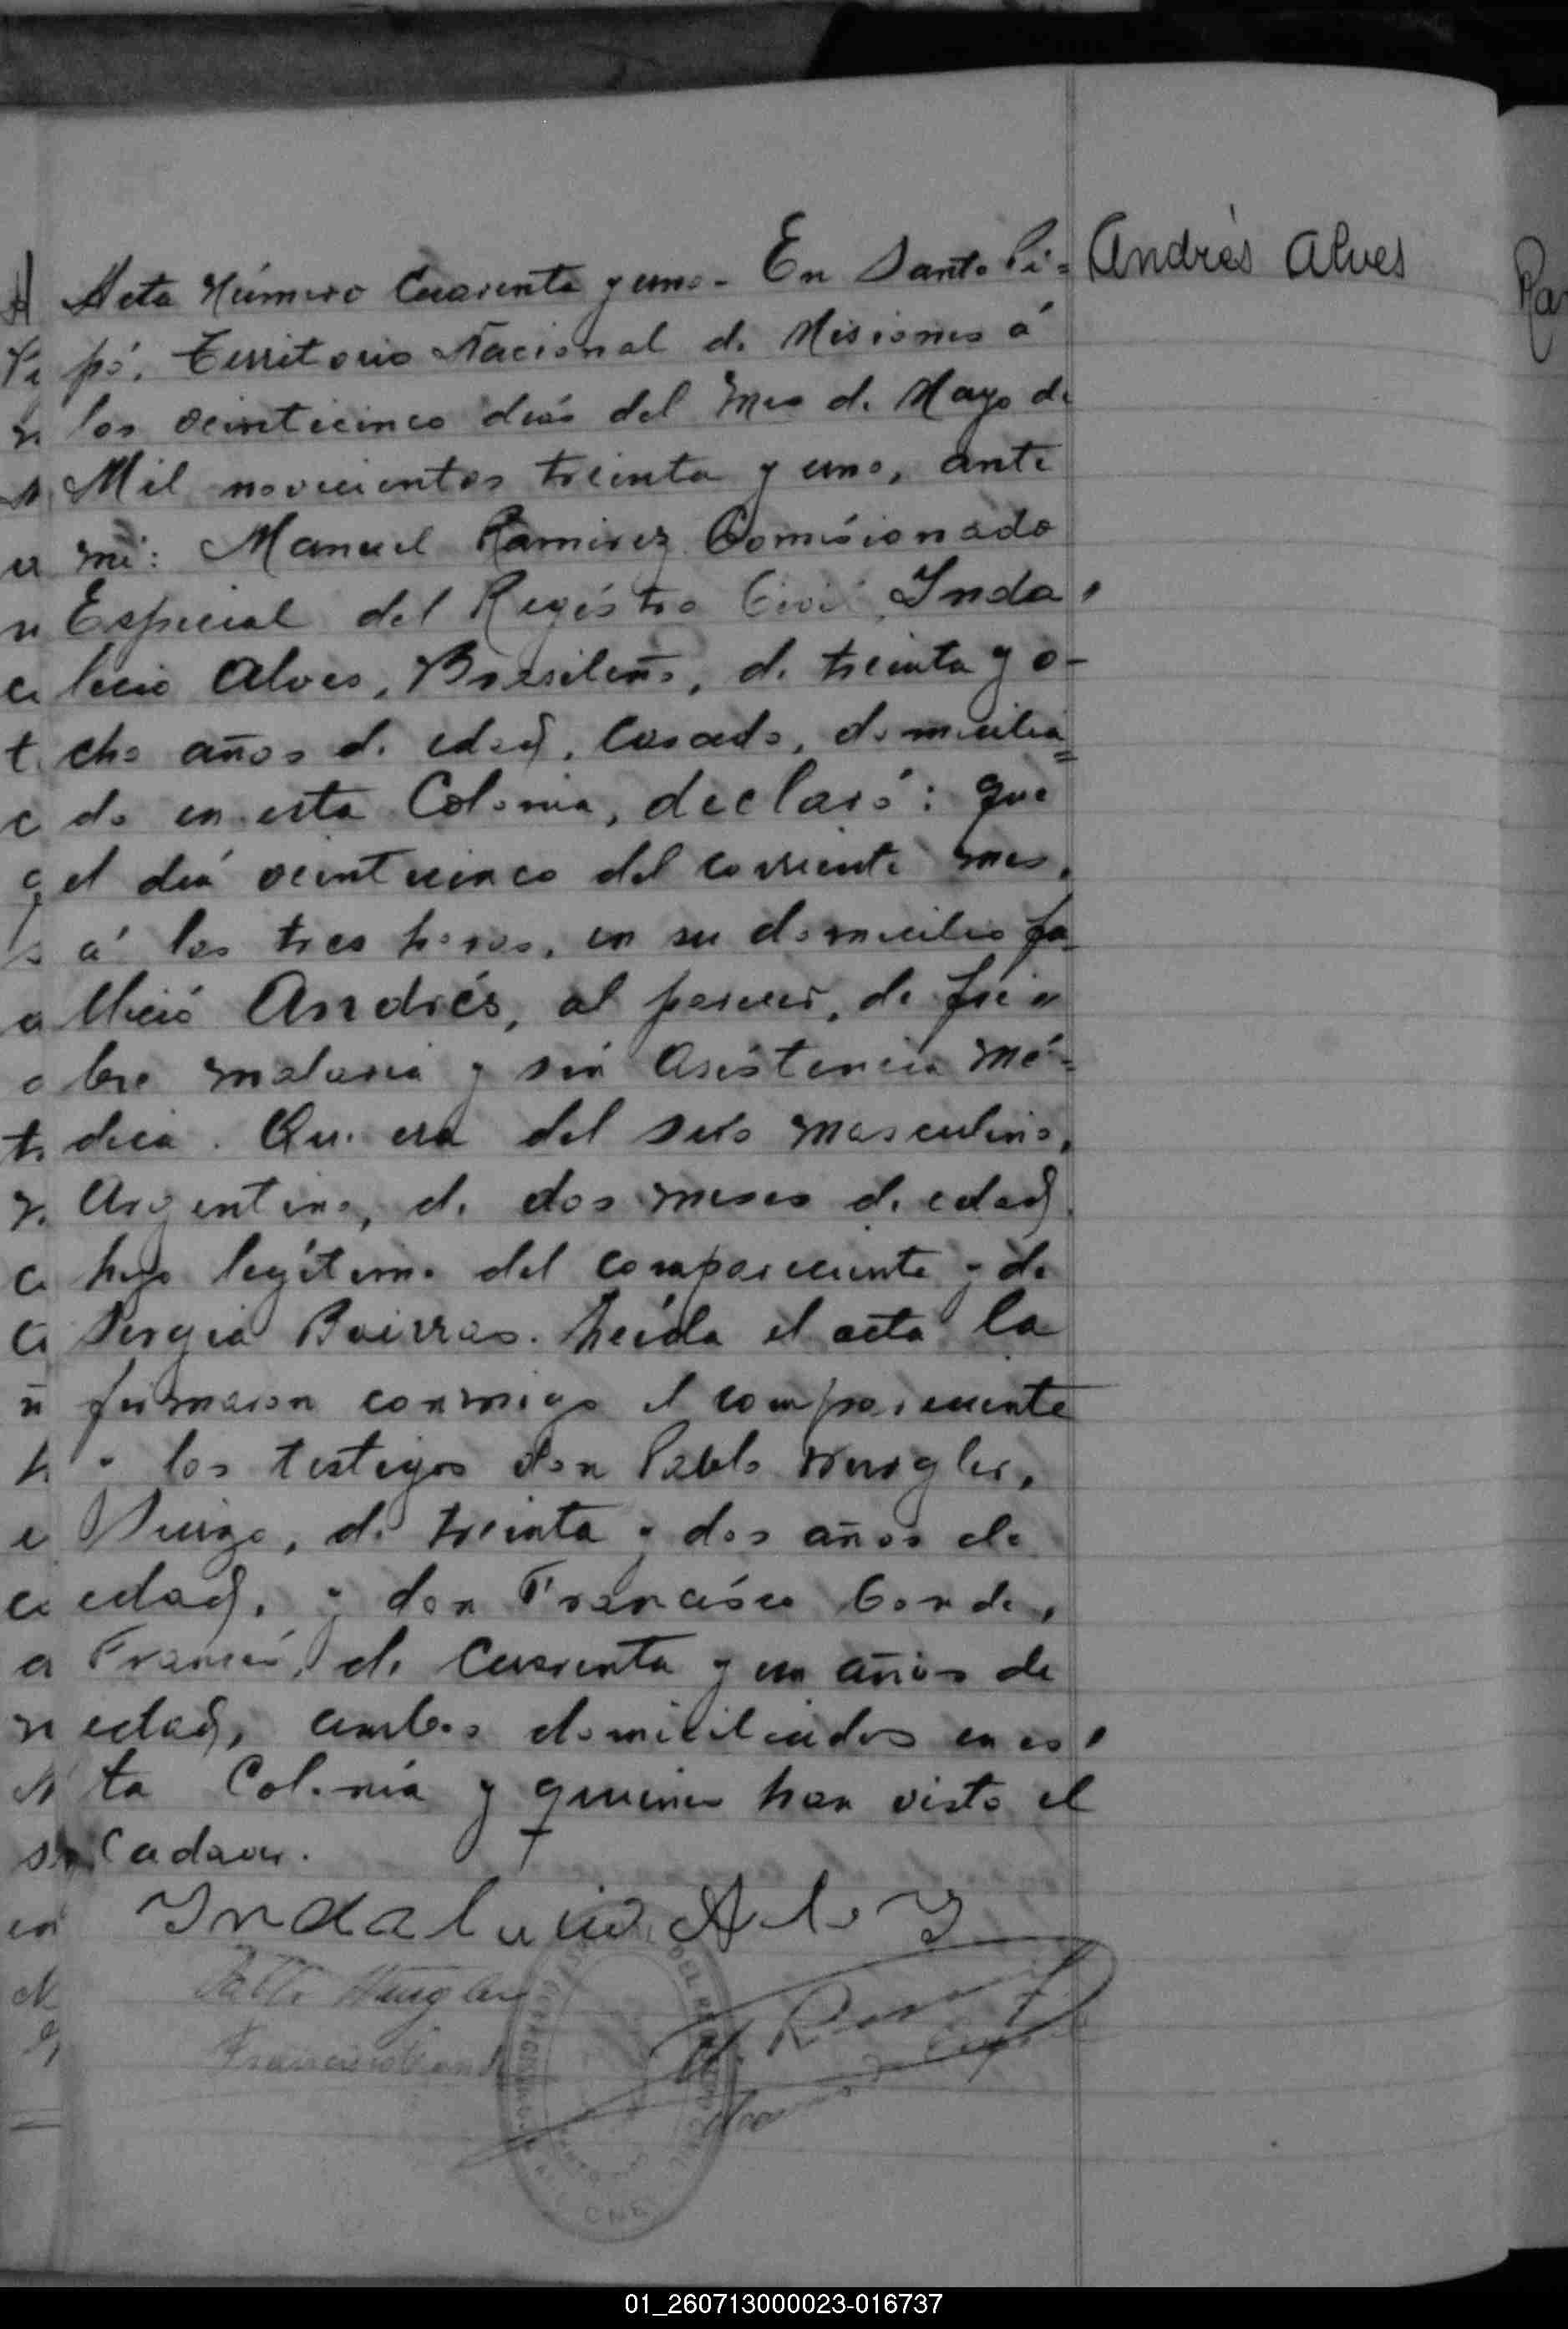 Andrés Alves
Acta Número Cuarenta y uno - En Santo Pi=
pó, Territorio Nacional de Misiones á
los veinticinco dias del mes de Mayo de
Mil novecientos treinta y uno, ante
mi: Manuel Ramirez Comisionado
Especial del Registro Civil Inda-
lecio Alves, Brasileño, de treinta y o-
cho años de edad, casado, domicilia=
do en esta Colonia, declaró: que
el dia veinticinco del corriente mes,
á las tres horas, en su domicilio fa-
lleció Andrés, al parecer, de fie-
bre malaria y sin asistencia mé=
dica. Que era del sexo masculino,
Argentino, de dos meses de edad,
hijo legítimo del compareciente y de
Sergia Bairras. Leída el acta la
firmaron conmigo el compareciente
y los testigos don Pablo
Suizo, de treinta y dos años de
edad, y don Francisco Conde,
Francés, de cuarenta y un años de
edad, ambos domiciliados en es-
ta Colonia y quienes han visto el
Cadaver.
Indalecio
Pablo
Francisco
01_260713000023-016737